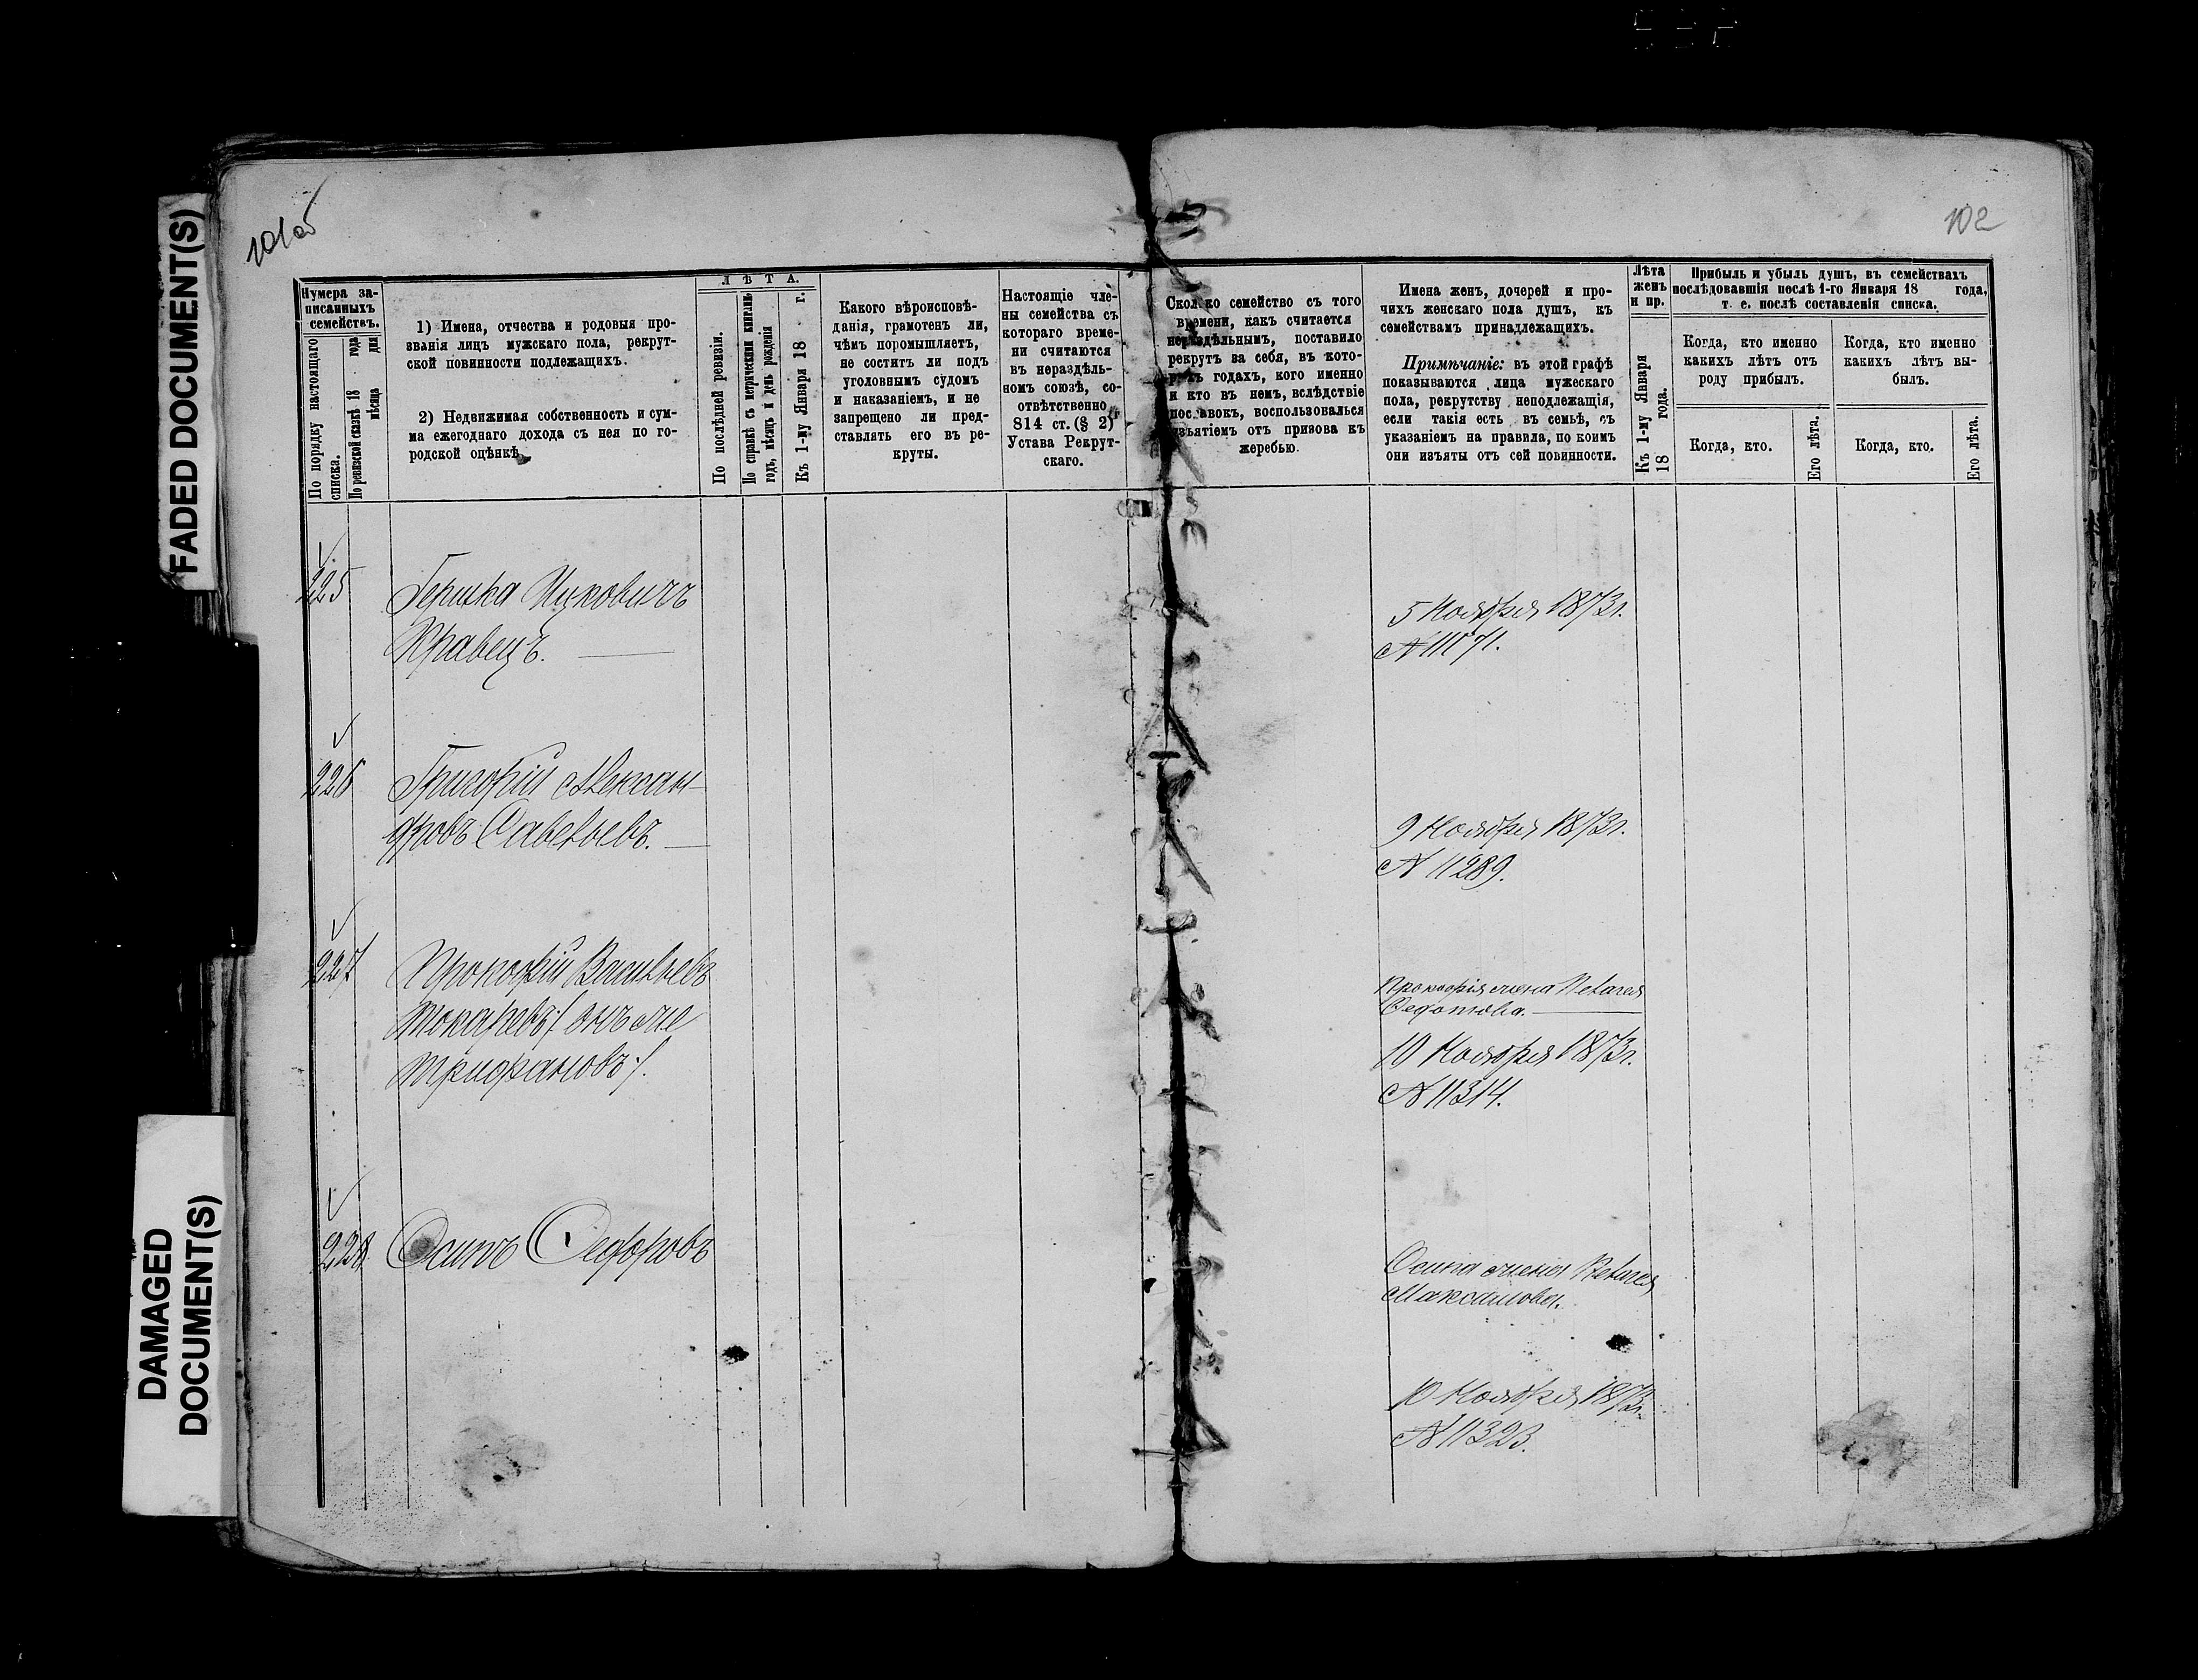 FADED DOCUMENT(S)
DAMAGED
DOCUMENT(S)
101об
102
Нумера за-
писанныхъ
семействъ.
По порядку настоящаго
списка.
По ревизской сказкѣ 18 года
мѣсяца дня
1) Имена, отчества и родовыя про-
званія лицъ мужскаго пола, рекрут-
ской повинности подлежащихъ.
2) Недвижимая собственность и сум-
ма ежегоднаго дохода съ нея по го-
родской оцѣнкѣ.
ЛѢТА.
По послѣдней ревизіи.
По справкѣ съ метрическими книгами
годъ, мѣсяцъ и день рожденія
Къ 1-му Января 18 г.
Какого вѣроисповѣ-
данія, грамотенъ ли,
чѣмъ поромышляетъ,
не соститъ ли подъ
уголовнымъ судомъ
и наказаніемъ, и не
запрещено ли пред-
ставлять его въ ре-
круты.
Настоящіе чле-
ны семейства съ
котораго време-
ни считаются
въ нераздѣль-
номъ союзѣ, со-
отвѣтственно
814 ст. (§ 2)
Устава Рекрут-
скаго.
Сколько семейство съ того
времени, какъ считается
нераздѣльнымъ, поставило
рекрутъ за себя, въ кото-
рыхъ годахъ, кого именно
и кто въ немъ, вслѣдствіе
поставокъ, воспользовался
изъятіемъ отъ призова къ
жеребью.
Имена женъ, дочерей и про-
чихъ женскаго пола душъ, къ
семействамъ принадлежащихъ.
Примѣчаніе: въ этой графѣ
показываются лица мужескаго
пола, рекрутству неподлежащія,
если такія есть въ семьѣ, съ
указаніемъ на правила, по коимъ
они изъяты отъ сей повинности.
Лѣта
женъ
и пр.
Къ 1-му Января
18 года.
Прибыль и убыль душъ, въ семействахъ
послѣдовавшія послѣ 1-го Января 18 года,
т. е. послѣ составленія списка.
Когда, кто именно
какихъ лѣтъ отъ
роду прибылъ.
Когда, кто именно
какихъ лѣтъ вы-
былъ.
Когда, кто.
Его лѣта.
Когда, кто.
Его лѣта.
225
Гершка Ицковичъ
Кравецъ.
5 Ноября 1873г.
№ 11171.
226
Григорій Алексан-
дровъ Савельевъ.
9 Ноября 1873г.
№ 11289.
227
Прокофій Васильевъ
Токаревъ /: онъ же
Трифановъ :/.
Прокофія жена Пелагея
Федотова.
10 Ноября 1873г.
№ 11314.
228
Осипъ Федоровъ
Осипа жена Пелагея
Максимова.
10 Ноября 1873г.
№ 11323.